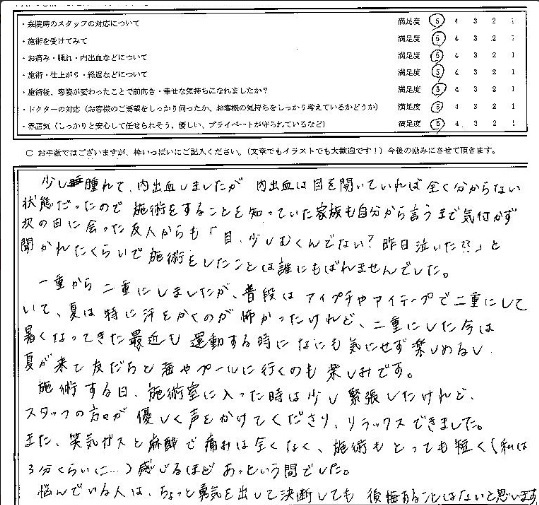 ・来院時のスタッフの対応について 満足度 5 4 3 2 1
・施術を受けてみて 満足度 5 4 3 2 1
・お痛み・腫れ・内出血などについて 満足度 5 4 3 2 1
・施術・仕上がり・経過などについて 満足度 5 4 3 2 1
・施術後、容姿が変わったことで前向き・幸せな気持ちになれましたか? 満足度 5 4 3 2 1
・ドクターの対応(お客様のご要望をしっかり伺ったか、お客様の気持ちをしっかり考えているかどうか) 満足度 5 4 3 2 1
・雰囲気(しっかりと安心して任せられそう、優しい、プライベートが守られているなど) 満足度 5 4 3 2 1
C お手数ではございますが、枠いっぱいにご記入ください。(文章でもイラストでも大歓迎です!)今後の励みにさせて頂きます。
少し腫れて、内出血しましたが 内出血は目を開いていれば全く分からない
状態だったので 施術をすることを知っていた家族も自分から言うまで気付かず
次の日に会った友人からも「目、少しむくんでない?昨日泣いた??」と
聞かれたくらいで施術をしたことは誰にもばれませんでした。
一重から二重にしましたが、普段はアイプチやアイテープで二重にして
いて、夏は特に汗をかくのが怖かったけれど、二重にした今は
暑くなってきた最近も運動する時になにも気にせず楽しめるし、
夏が来て友だちと海やプールに行くのも楽しみです。
施術する日、施術室に入った時は少し緊張したけれど、
スタッフの方々が優しく声をかけてくださり、リラックスできました。
また、笑気ガスと麻酔で痛みは全くなく、施術もとっても短く(私は
3分くらいに…)感じるほどあっという間でした。
悩んでいる人は、ちょっと勇気を出して決断しても後悔することはないと思います